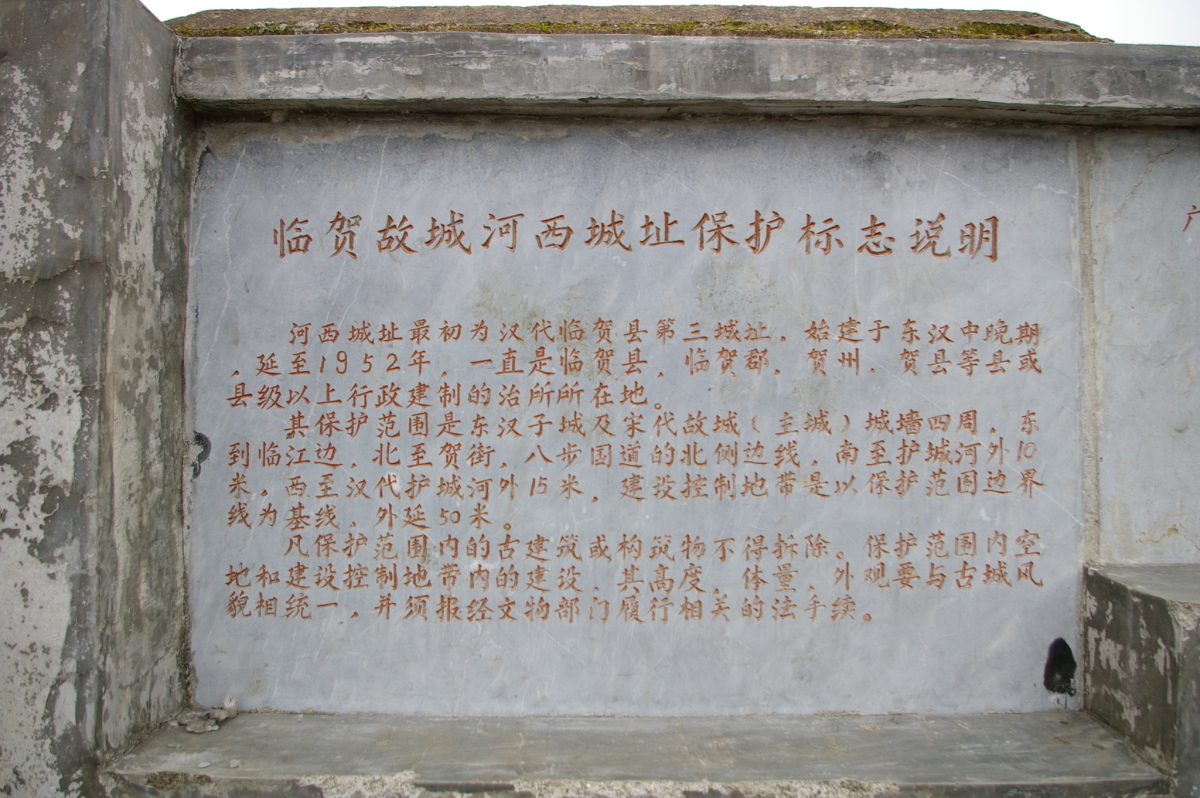 临贺故城河西城址保护标志说明
河西城址最初为汉代临贺县第三城址，始建于东汉中晚期
，延至1952年，一直是临贺县，临贺郡，贺州，贺县中等县或
县级以上行政建制的治所所在地。
其保护范围是东汉子城及宋代故城（主城）城墙四周，东
到临江边，北至贺街，八步国道的北侧边线，南至护城河外10
米。西至汉代护城河外15米，建设控制地带是以保护范围边界
线为基线，外延50米。
凡保护范围内的古建筑或构筑物不得拆除。保护范围内空
地和建设控制地带内的建设，其高度、体量，外观要与古城风
貌相统一，并须报经文物部门履行相关的法手续。
广